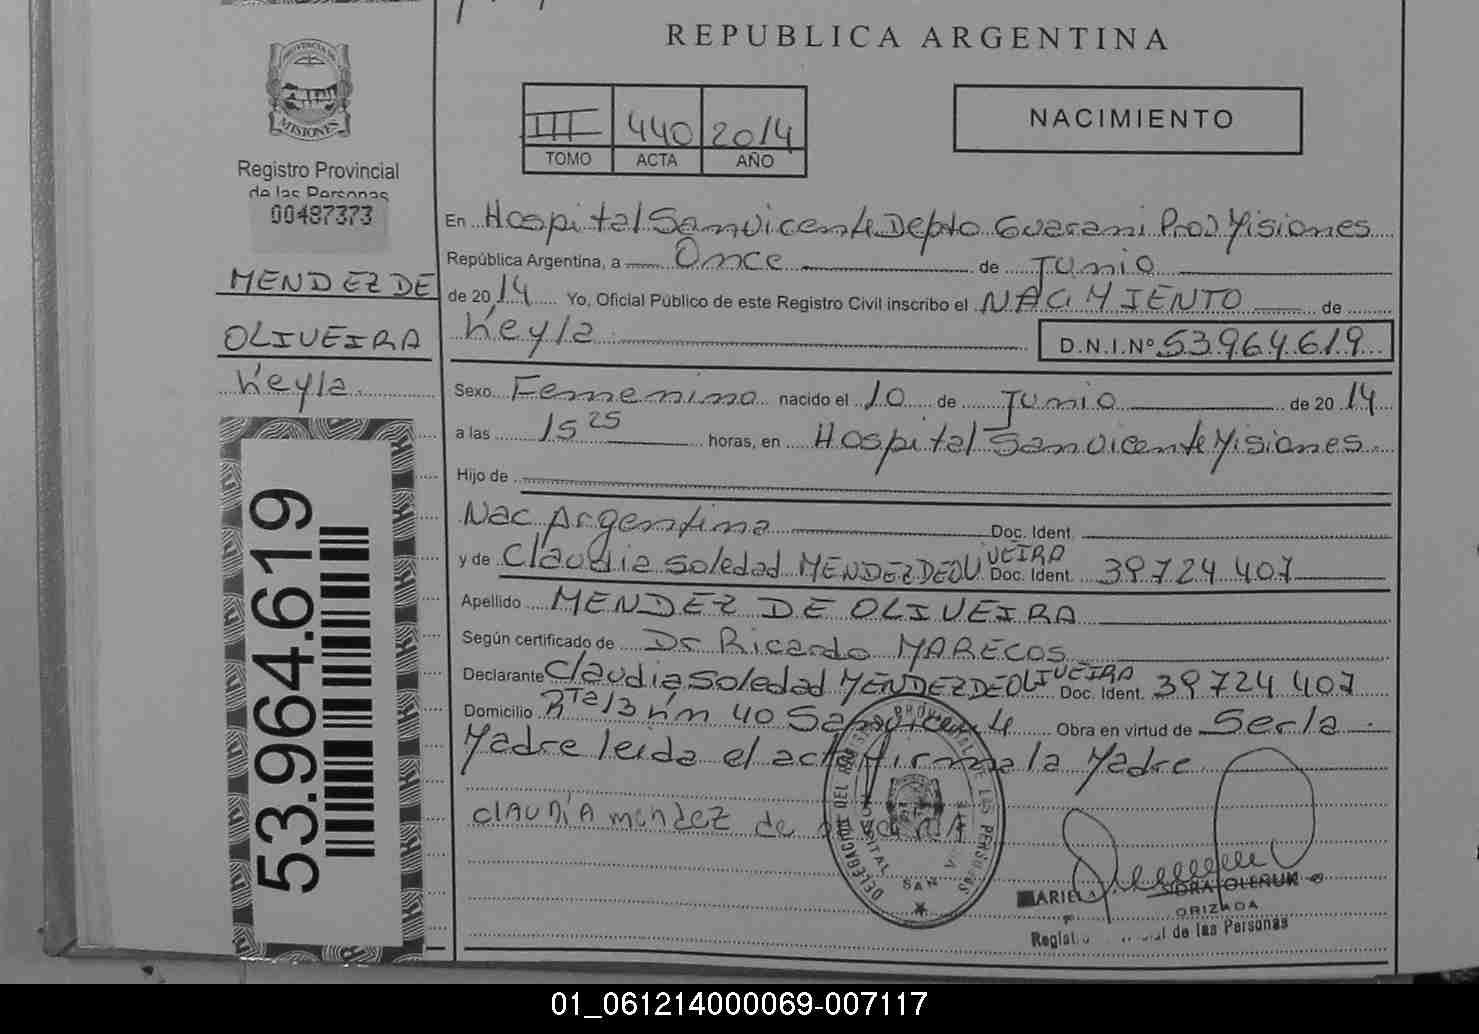 REPUBLICA ARGENTINA
PROVINCIA DE
MISIONES
Registro Provincial
de las Personas
00487373
MENDEZ DE
OLIVEIRA
Keyla
53.964.619
III 440 2014
TOMO ACTA AÑO
NACIMIENTO
En Hospital San Vicente Depto Guarani Prov Misiones
República Argentina, a Once de Junio
de 2014 Yo, Oficial Público de este Registro Civil inscribo el NACIMIENTO de
Keyla D.N.I.Nº 53.964.619
Sexo Femenino nacido el 10 de Junio de 2014
a las 15 25 horas, en Hospital San Vicente Misiones
Hijo de
Nac Argentina Doc. Ident.
y de Claudia Soledad MENDEZ DE OLIVEIRA Doc. Ident. 39724407
Apellido MENDEZ DE OLIVEIRA
Según certificado de Dr Ricardo MARECOS
Declarante Claudia Soledad MENDEZ DE OLIVEIRA Doc. Ident. 39724407
Domicilio Rta 13 Km 40 San Vicente Obra en virtud de Ser la
Madre leida el acta firma la Madre
CLAUDIA mendez de
DELEGACION DEL REGISTRO PROVINCIAL DE LAS PERSONAS
HOSPITAL SAN
ORIZADA
de las Personas
01_061214000069-007117